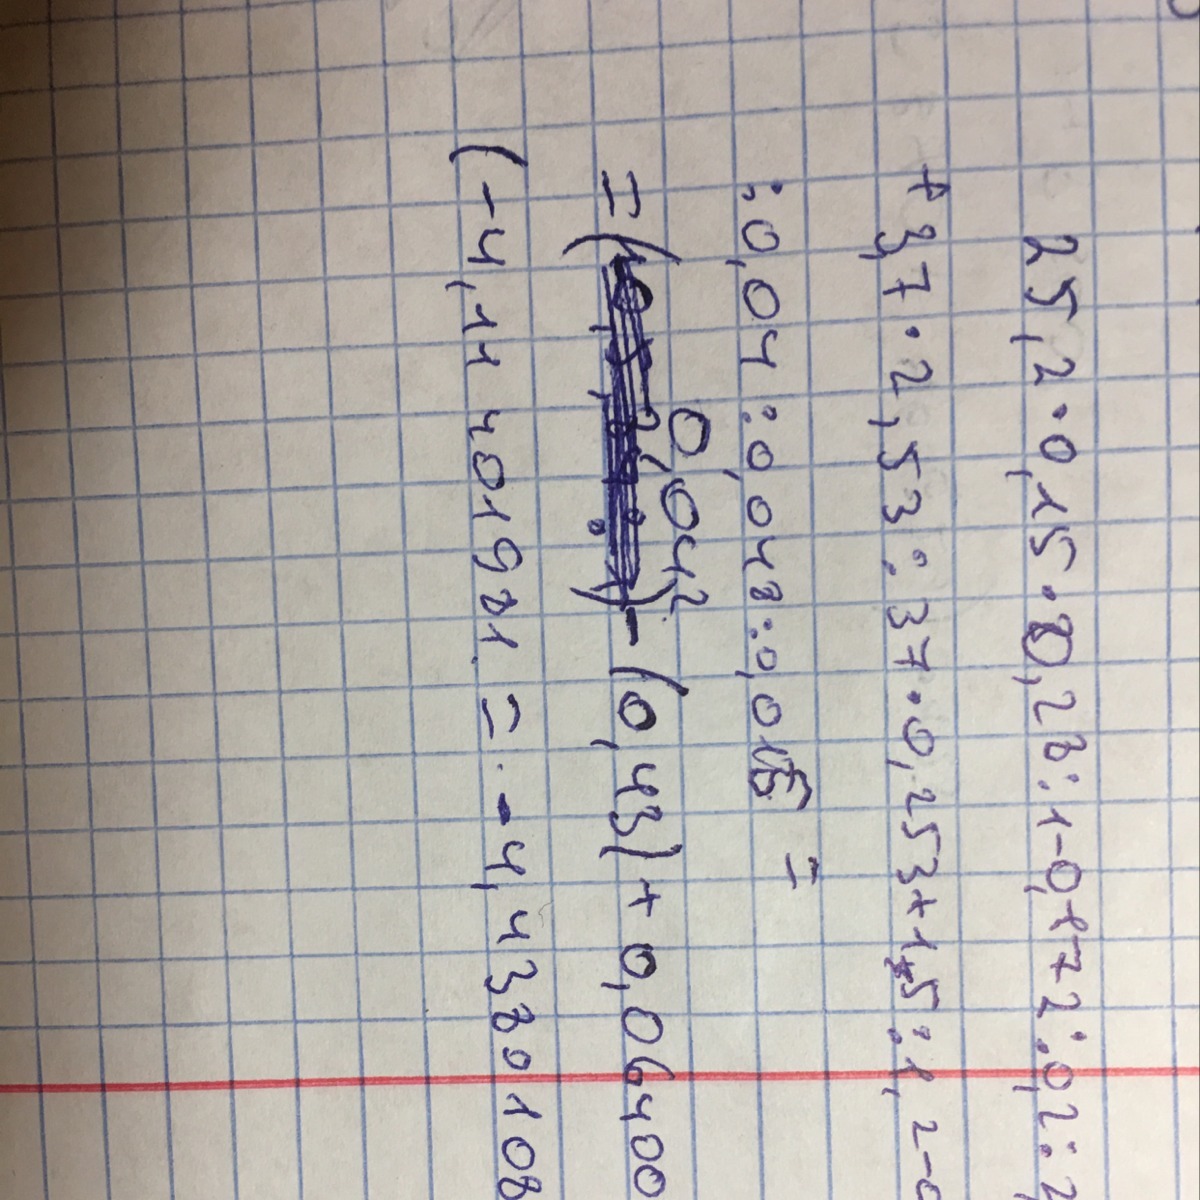 25,2·0,15·0,28:1-0,172:0,2:
+3,7·2,53:37·0,253+1,5:1,2-0
:0,04:0,048:0,015 =
0,042
=( )-(0,43)+0,06400
(-4,11401981 = -4,4380108